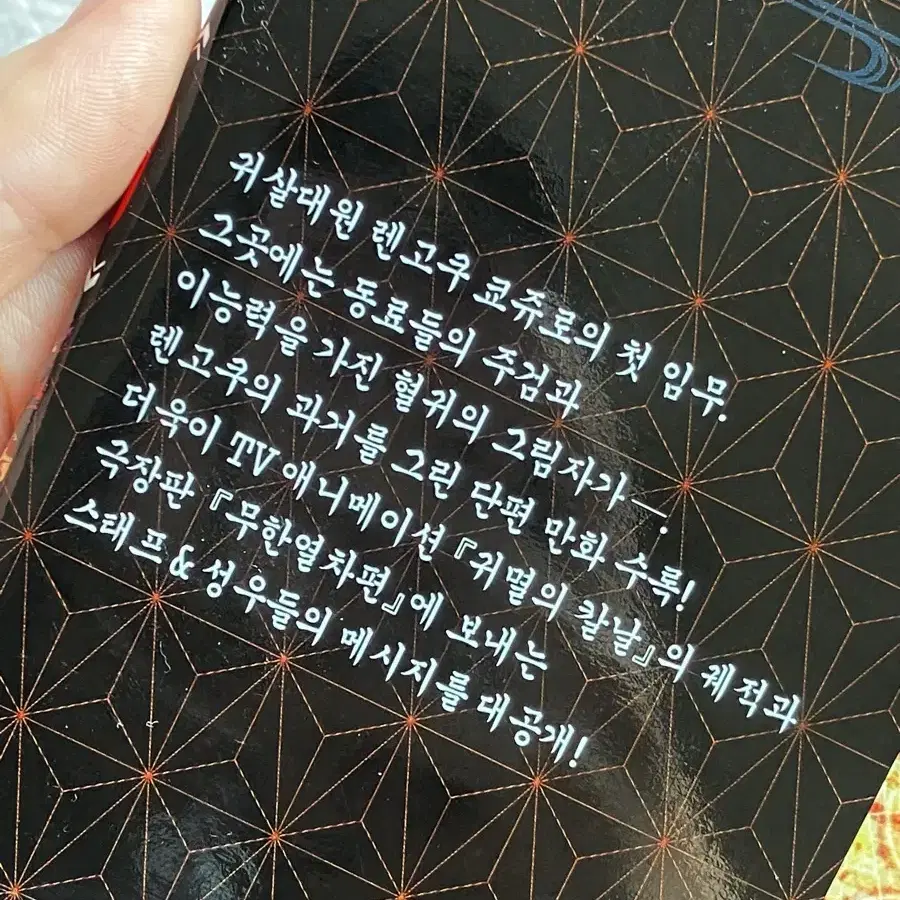 귀살대원 렌고쿠 쿄쥬로의 첫 임무.
그곳에는 동료들의 주검과
이능력을 가진 혈귀의 그림자가―.
렌고쿠의 과거를 그린 단편 만화 수록!
더욱이 TV 애니메이션 『귀멸의 칼날』의 궤적과
극장판 『무한열차편』에 보내는
스태프&성우들의 메시지를 대공개!